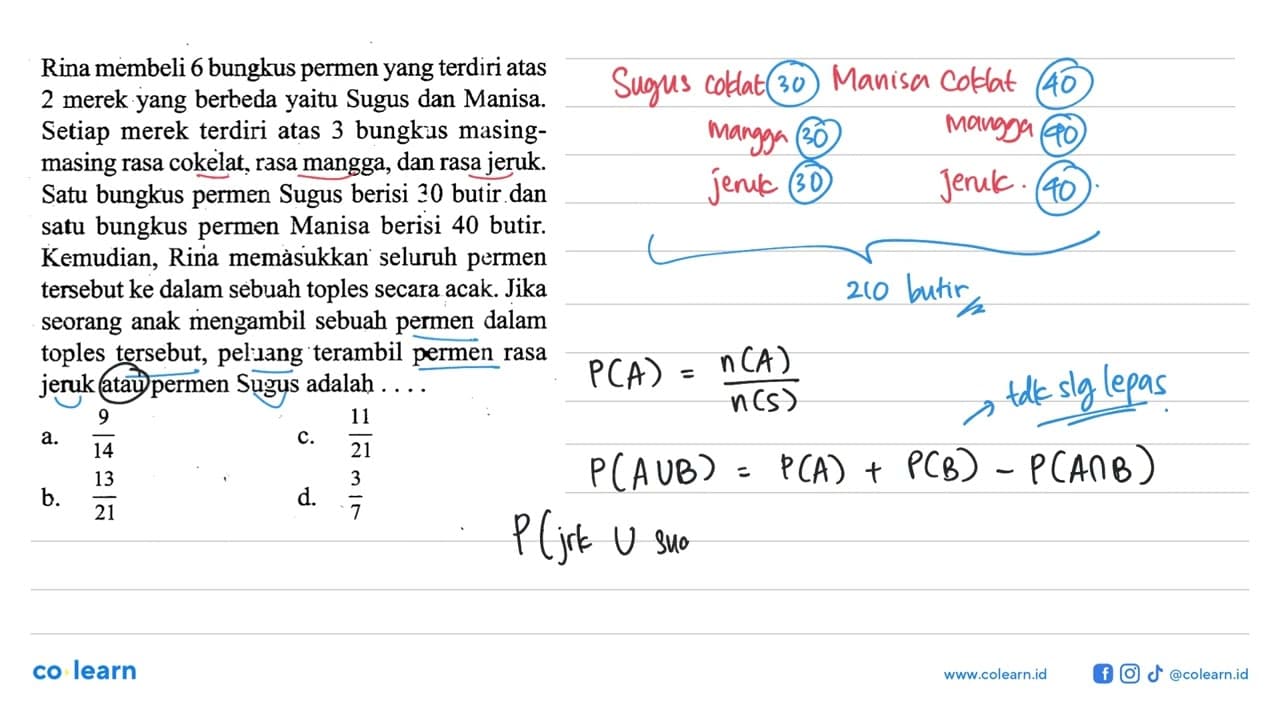 Rina membeli 6 bungkus permen yang terdiri atas
2 merek yang berbeda yaitu Sugus dan Manisa.
Setiap merek terdiri atas 3 bungkus masing-
masing rasa cokelat, rasa mangga, dan rasa jeruk.
Satu bungkus permen Sugus berisi 30 butir dan
satu bungkus permen Manisa berisi 40 butir.
Kemudian, Rina memasukkan seluruh permen
tersebut ke dalam sebuah toples secara acak. Jika
seorang anak mengambil sebuah permen dalam
toples tersebut, peluang terambil permen rasa
jeruk atau permen Sugus adalah . . . .
a. 9/14 c. 11/21
b. 13/21 d. 3/7
Sugus coklat 30 Manisa Coklat 40
Mangga 30 Mangga 40
jeruk 30 Jeruk. 40.
210 butir
P(A) = n(A)/n(S)
→ tdk slg lepas.
P(A∪B) = P(A) + P(B) - P(A∩B)
P(jrk ∪ sug
co learn
www.colearn.id @colearn.id